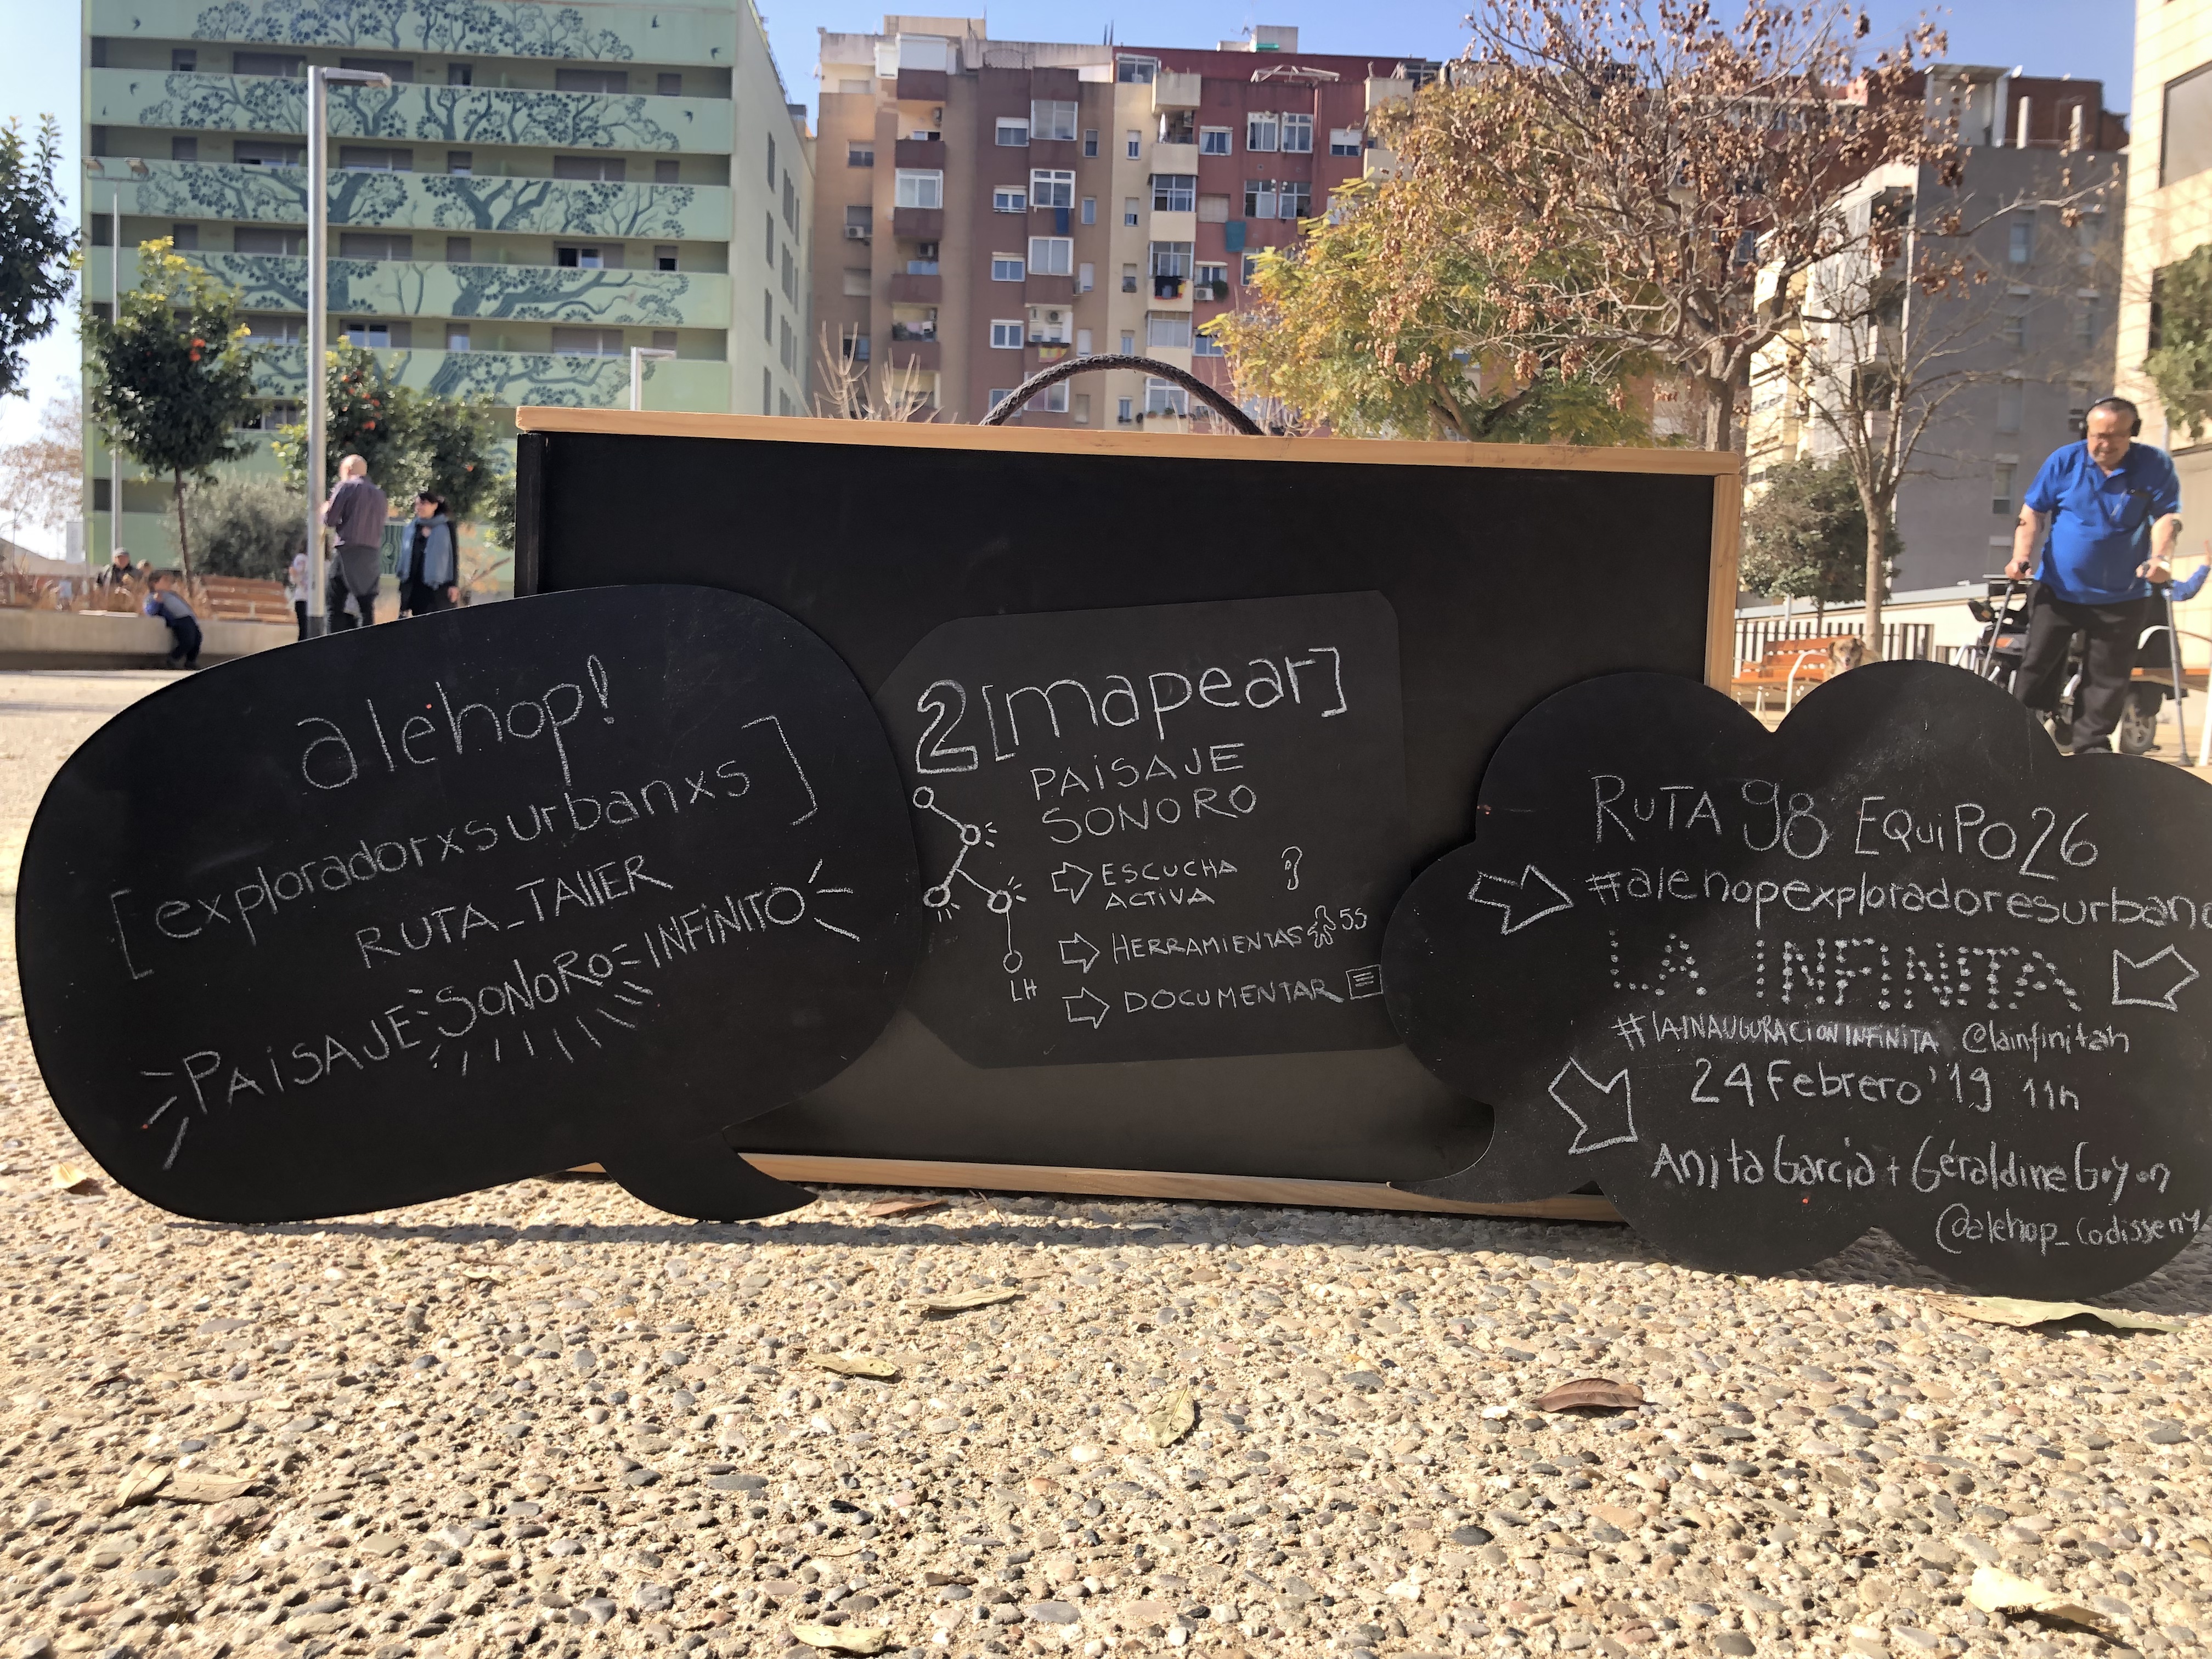 alehop!
[exploradorxs urbanxs]
RUTA_TALLER
PAiSAJE SONORO INFiNiTO
2 [mapear]
PAiSAJE
SONORO
ESCUCHA
ACTiVA
HERRAMIENTAS 5S
DOCUMENTAR
LH
RUTA 98 EQUiPO 26
#alehopexploradoresurban
LA INFINITA
#lAINAUGURACiONINFiNiTA @lainfinitalh
24 Febrero '19 11h
Anita Garcia + Géraldine Guyon
@alehop_codisseny